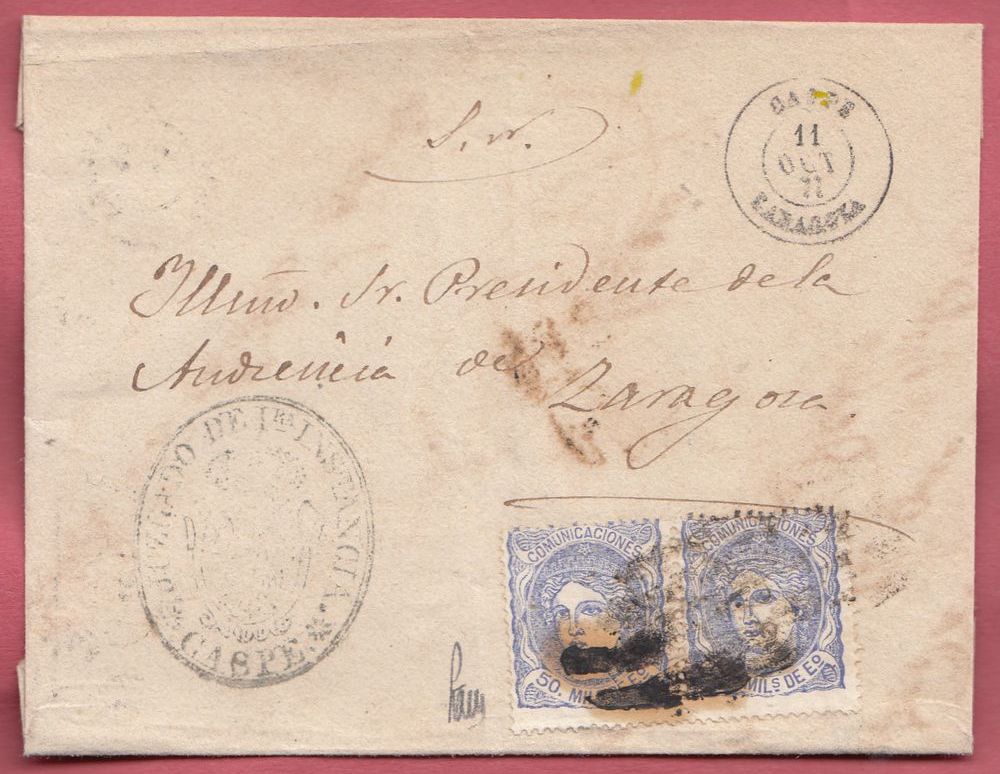 S. N.
CASPE
11
OCT
71
ZARAGOZA
Illmo. Sr. Presidente de la
Audiencia de
Zaragoza.
JUZGADO DE 1ra INSTANCIA.
* CASPE. *
COMUNICACIONES
50. MILS DE Eo
COMUNICACIONES
MILS DE Eo